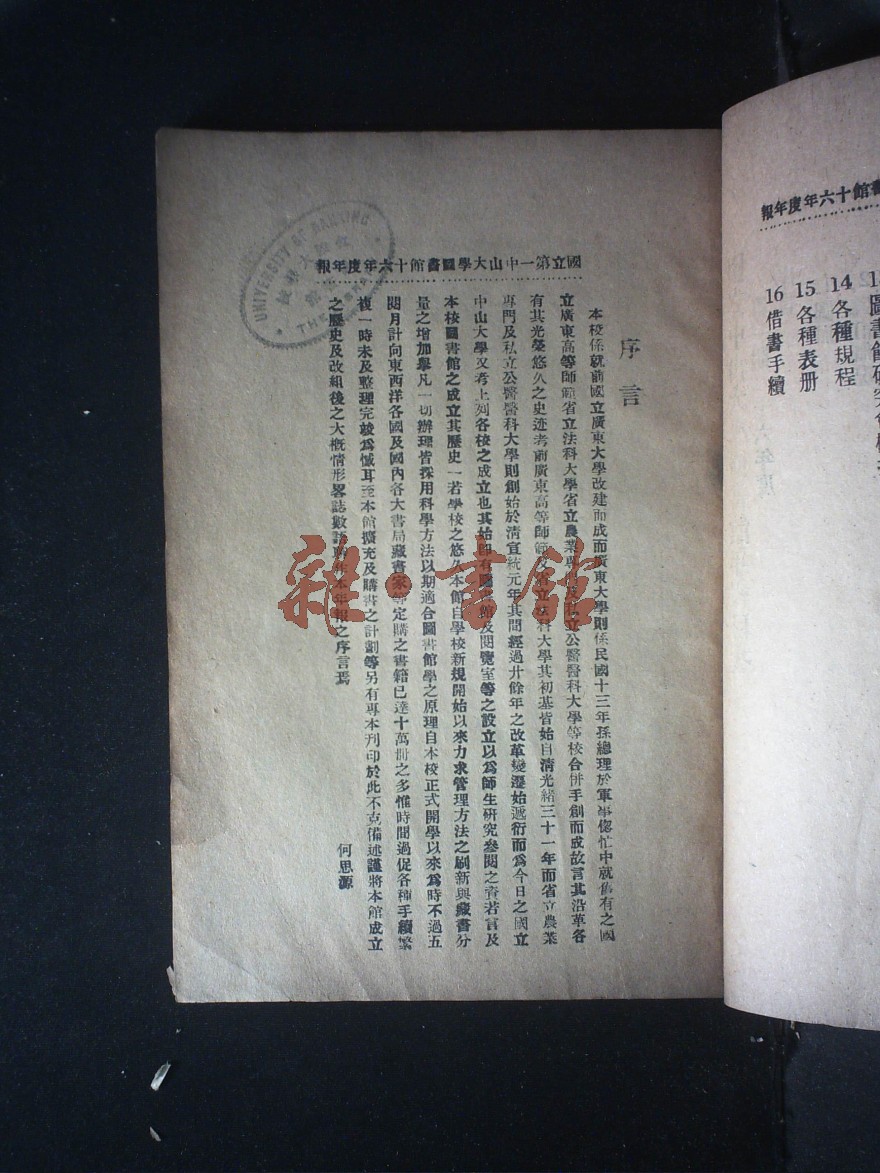 國立第一中山大學圖書館十六年度年報
序言
本校係就前國立廣東大學改建而成而廣東大學則係民國十三年孫總理於軍事偬忙中就舊有之國
立廣東高等師範省立法科大學省立農業專門及私立公醫醫科大學等校合併手創而成故言其沿革各
有其光榮悠久之史迹考前廣東高等師範及省立法科大學其初基皆始自清光緒三十一年而省立農業
專門及私立公醫醫科大學則創始於清宣統元年其間經過廿餘年之改革變遷始遞衍而爲今日之國立
中山大學又考上列各校之成立也其始即有圖書館及閱覽室等之設立以爲師生研究參閱之資若言及
本校圖書館之成立其歷史一若學校之悠久本館自學校新規開始以來力求管理方法之刷新與藏書分
量之增加舉凡一切辦理皆採用科學方法以期適合圖書館學之原理自本校正式開學以來爲時不過五
閱月計向東西洋各國及國內各大書局藏書家等定購之書籍已達十萬冊之多惟時間過促各種手續繁
複一時未及整理完竣爲憾耳至本館擴充及購書之計劃等另有專本刊印於此不克備述謹將本館成立
之歷史及改組後之大概情形畧誌數語 作本年報之序言焉
何思源
UNIVERSITY OF NANKING
書館十六年度年報
14 各種規程
15 各種表册
16 借書手續
雜·書館